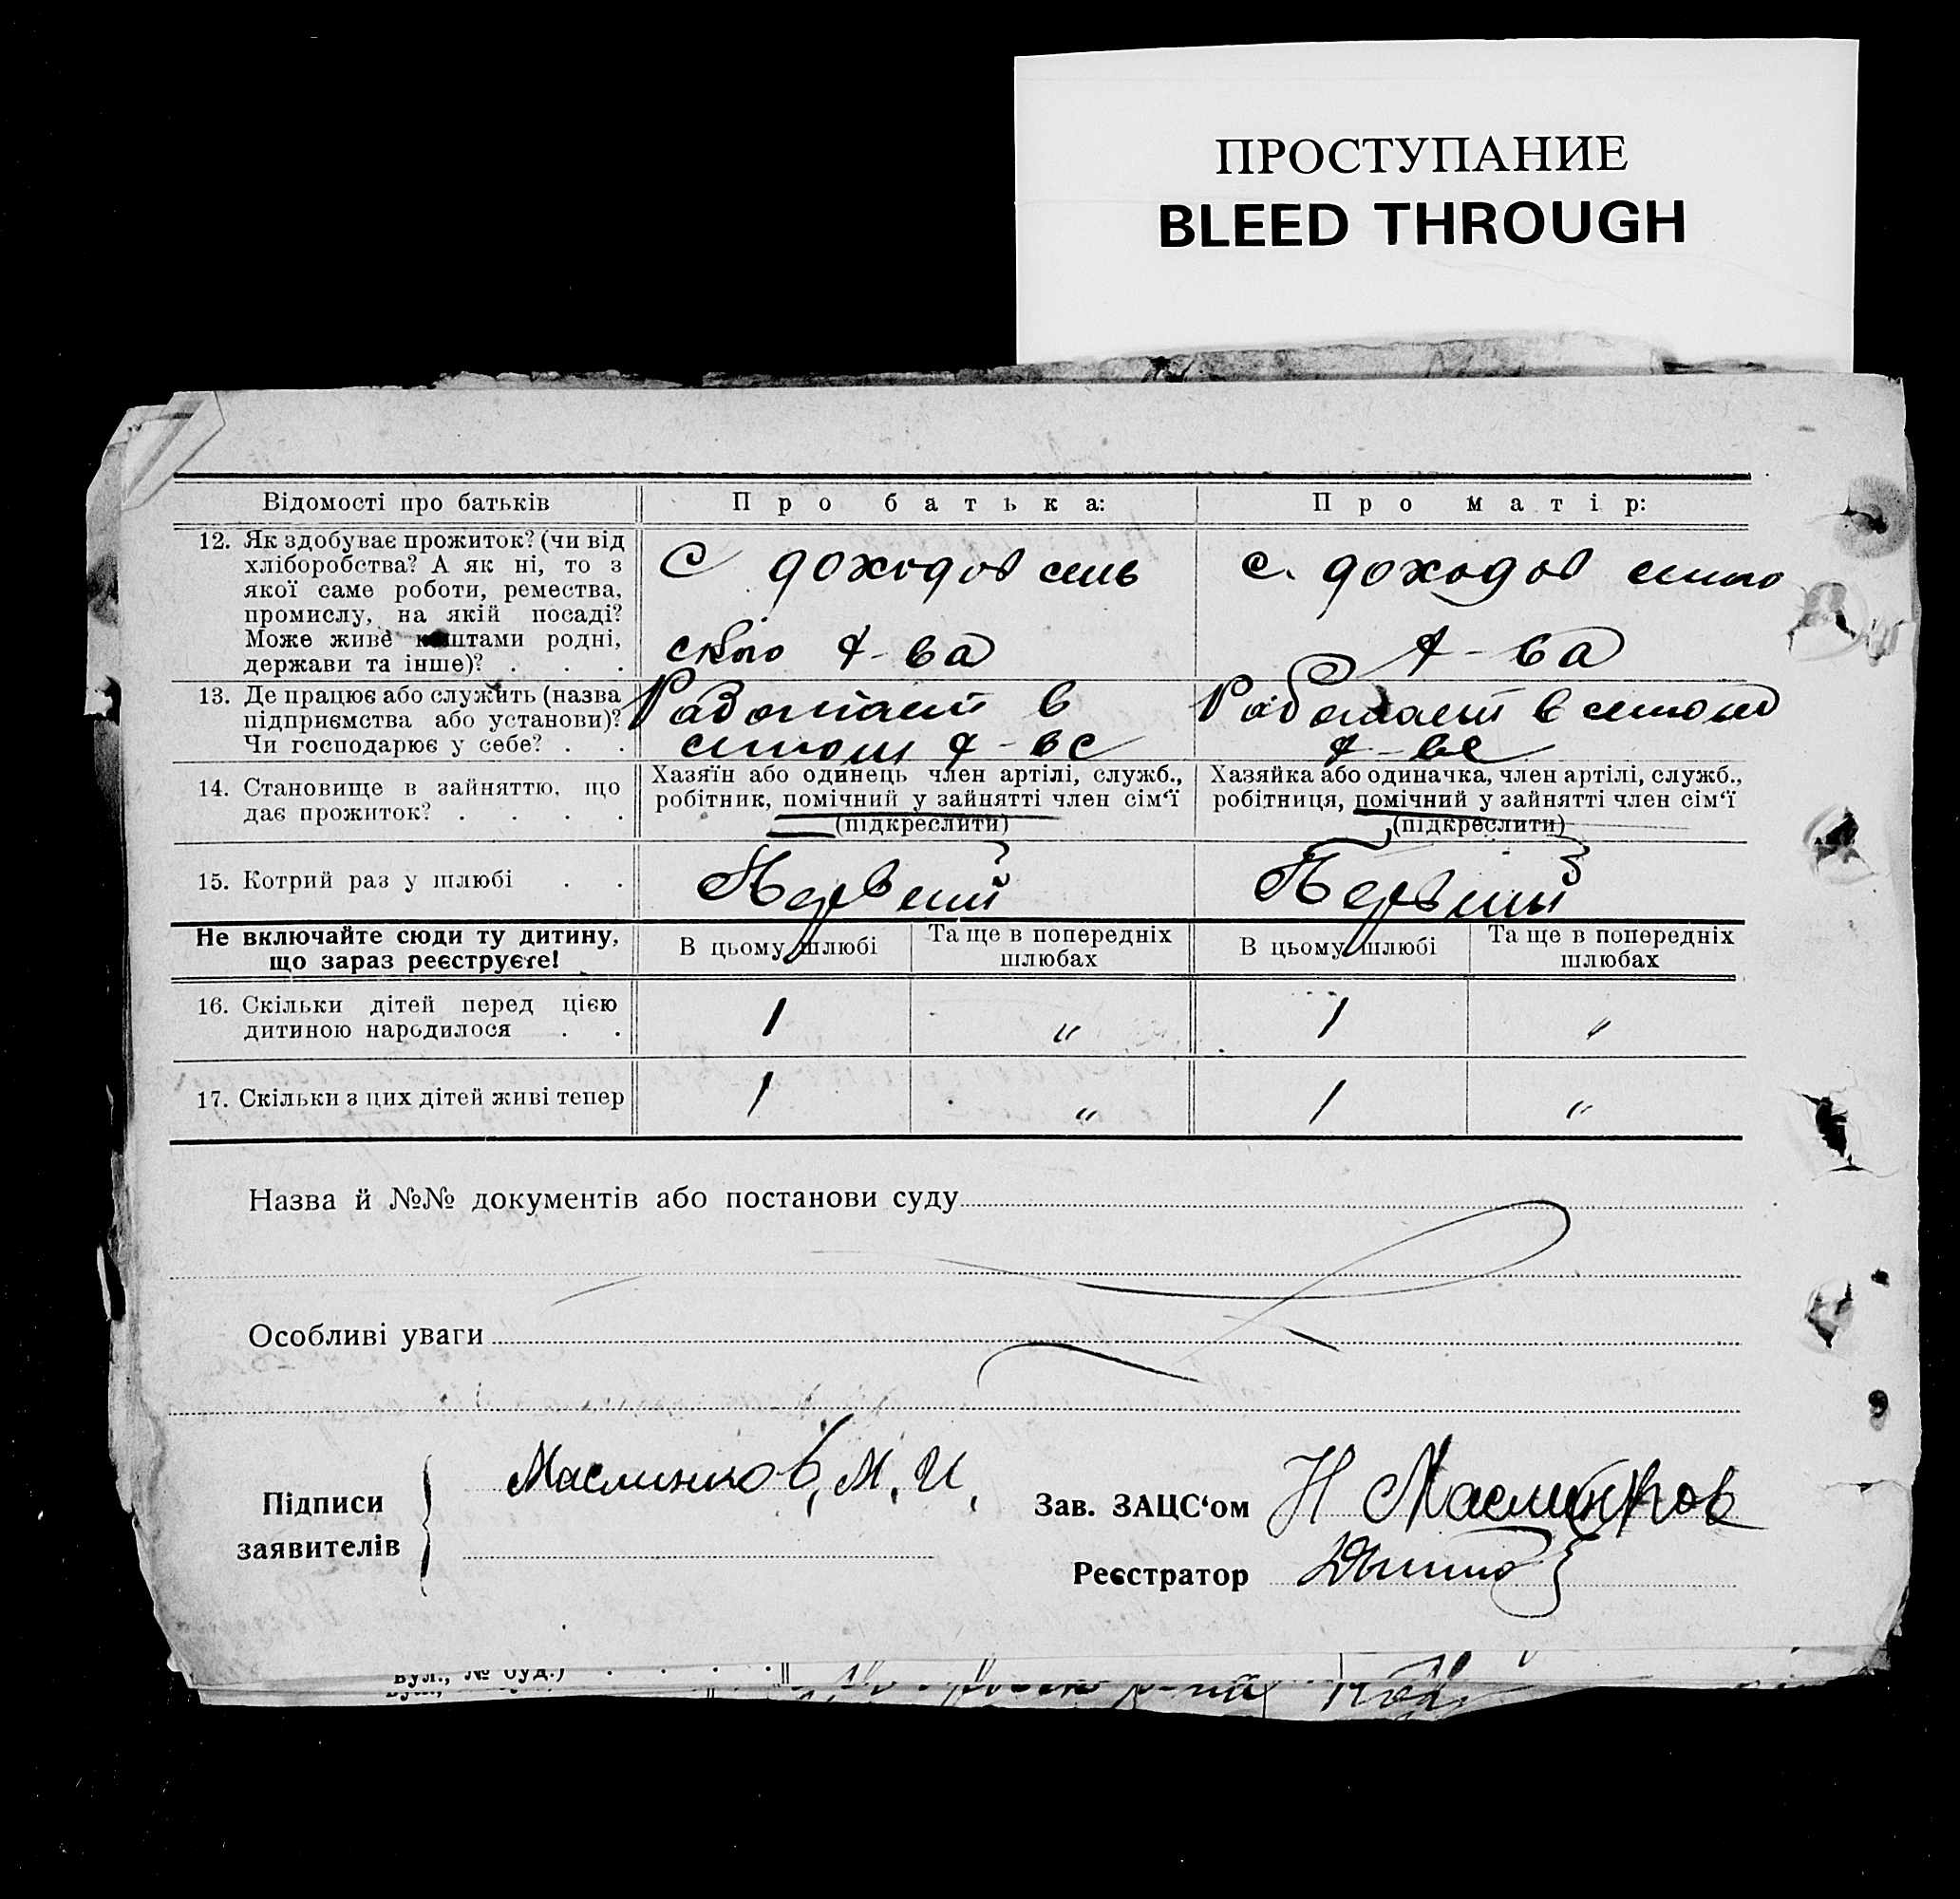 ПРОСТУПАНИЕ
BLEED THROUGH
Відомості про батьків
Про батька:
Про матір:
12. Як здобуває прожиток? (чи від
хліборобства? А як ні, то з
якої саме роботи, ремества,
промислу, на якій посаді?
Може живе коштами родні,
держави та інше)? . . .
С доходов сель
ского х-ва
с. доходов
х-ва
13. Де працює або служить (назва
підприємства або установи)?
Чи господарює у себе? . .
Работает в
х-ве
Работает в
х-ве
14. Становище в зайняттю, що
дає прожиток? . . . .
Хазяїн або одинець член артілі, служб.,
робітник, помічний у зайнятті член сім‘ї
(підкреслити)
Хазяйка або одиначка, член артілі, служб.,
робітниця, помічний у зайнятті член сім‘ї
(підкреслити)
15. Котрий раз у шлюбі . .
Первый
Первый
Не включайте сюди ту дитину,
що зараз реєструєте!
В цьому шлюбі
Та ще в попередніх
шлюбах
В цьому шлюбі
Та ще в попередніх
шлюбах
16. Скільки дітей перед цією
дитиною народилося . .
1
"
1
"
17. Скільки з цих дітей живі тепер
1
"
1
"
Назва й №№ документів або постанови суду
Особливі уваги
Підписи
заявителів
Маслинков, М. И.
Зав. ЗАЦС‘ом
Н Маслинков
Реєстратор
вул., № буд.) . . . .